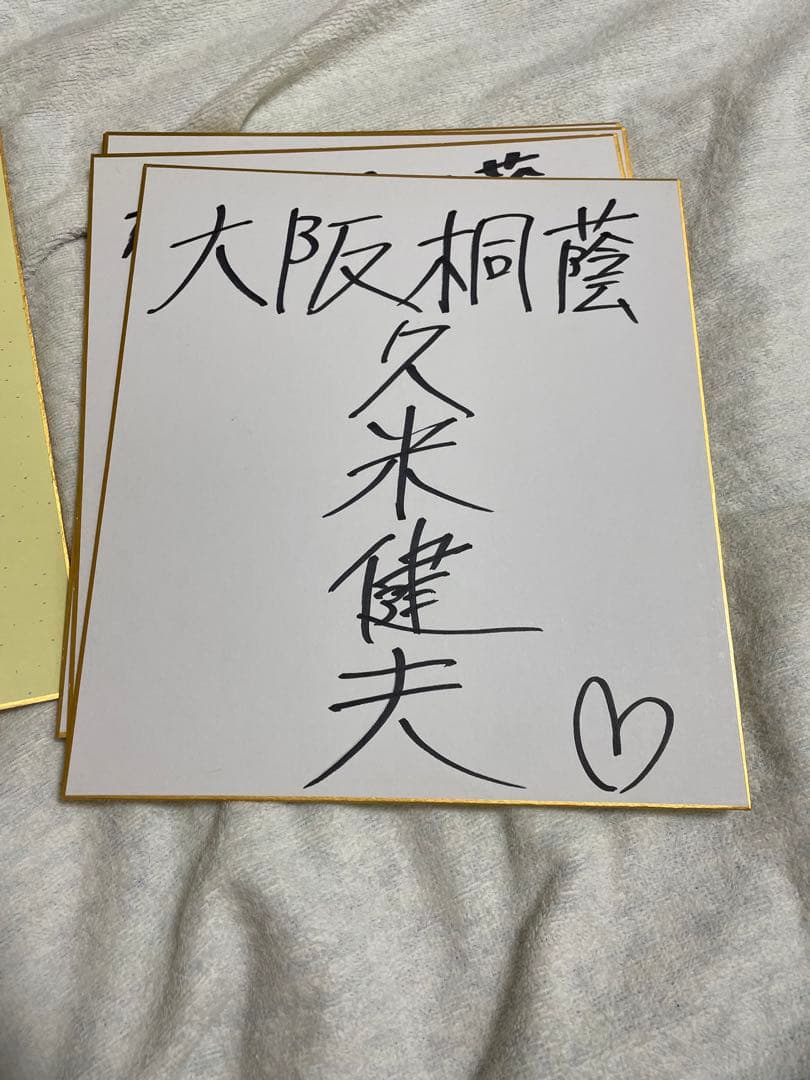 大阪桐蔭
久米健夫